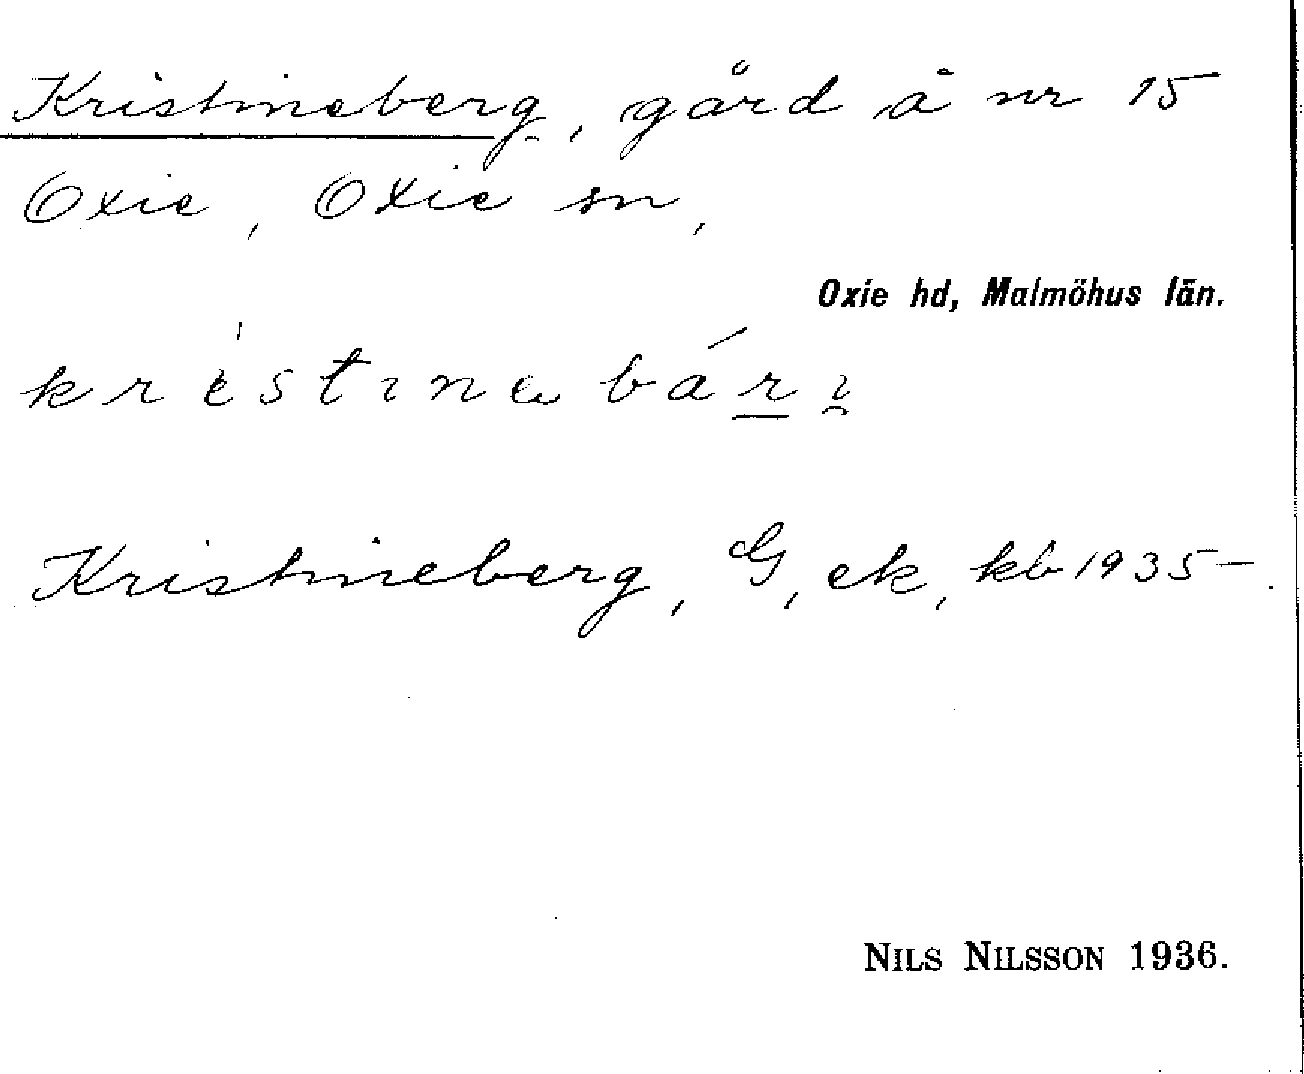 Kristineberg, gård å nr 15
Oxie, Oxie sn,
Oxie hd, Malmöhus län.
Kristineberg, G, ek, kb 1935–.
NILS NILSSON 1936.